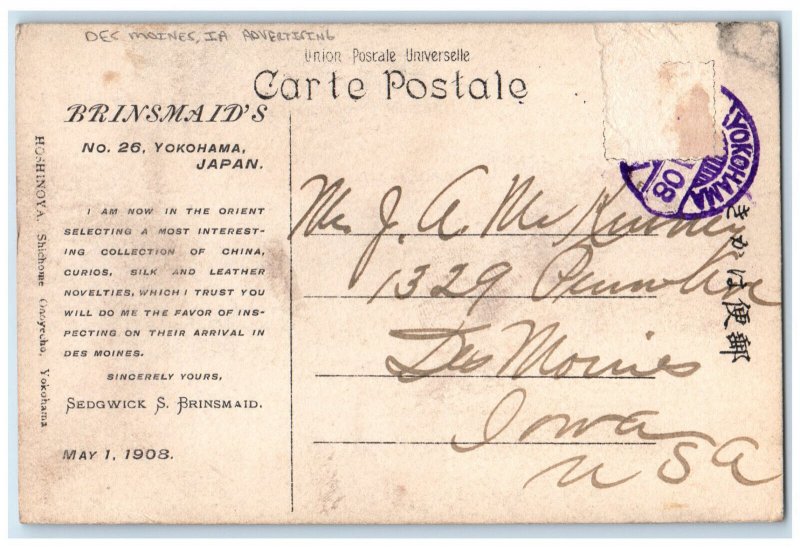 DES MOINES, IA ADVERTISING
Union Postale Universelle
Carte Postale
BRINSMAID'S
No. 26, YOKOHAMA,
JAPAN.
I AM NOW IN THE ORIENT
SELECTING A MOST INTEREST-
ING COLLECTION OF CHINA,
CURIOS, SILK AND LEATHER
NOVELTIES, WHICH I TRUST YOU
WILL DO ME THE FAVOR OF INS-
PECTING ON THEIR ARRIVAL IN
DES MOINES.
SINCERELY YOURS,
SEDGWICK S. BRINSMAID.
MAY 1, 1908.
HOSHINOYA, Shichome Yokohama
YOKOHAMA
08
Mrs J. A. McKinney
1329 Penn Ave
Des Moines
Iowa
USA
郵便はかき